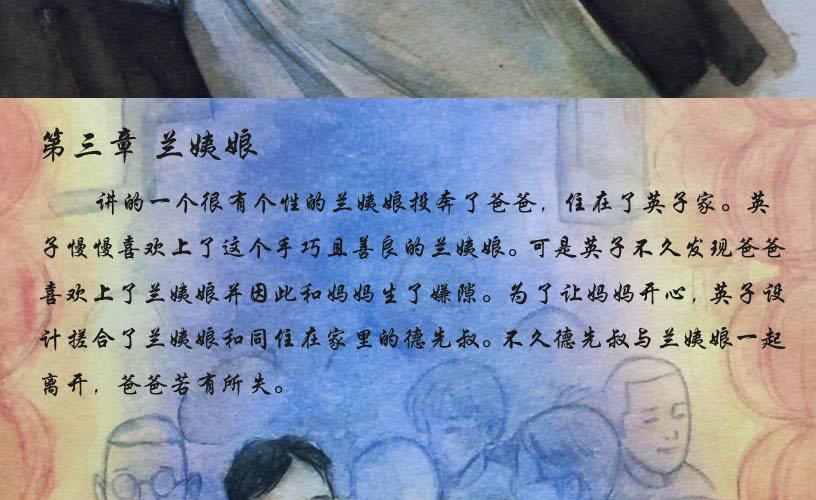 第三章 兰姨娘
讲的一个很有个性的兰姨娘投奔了爸爸，住在了英子家。英
子慢慢喜欢上了这个手巧且善良的兰姨娘。可是英子不久发现爸爸
喜欢上了兰姨娘并因此和妈妈生了嫌隙。为了让妈妈开心，英子设
计搓合了兰姨娘和同住在家里的德先叔。不久德先叔与兰姨娘一起
离开，爸爸若有所失。